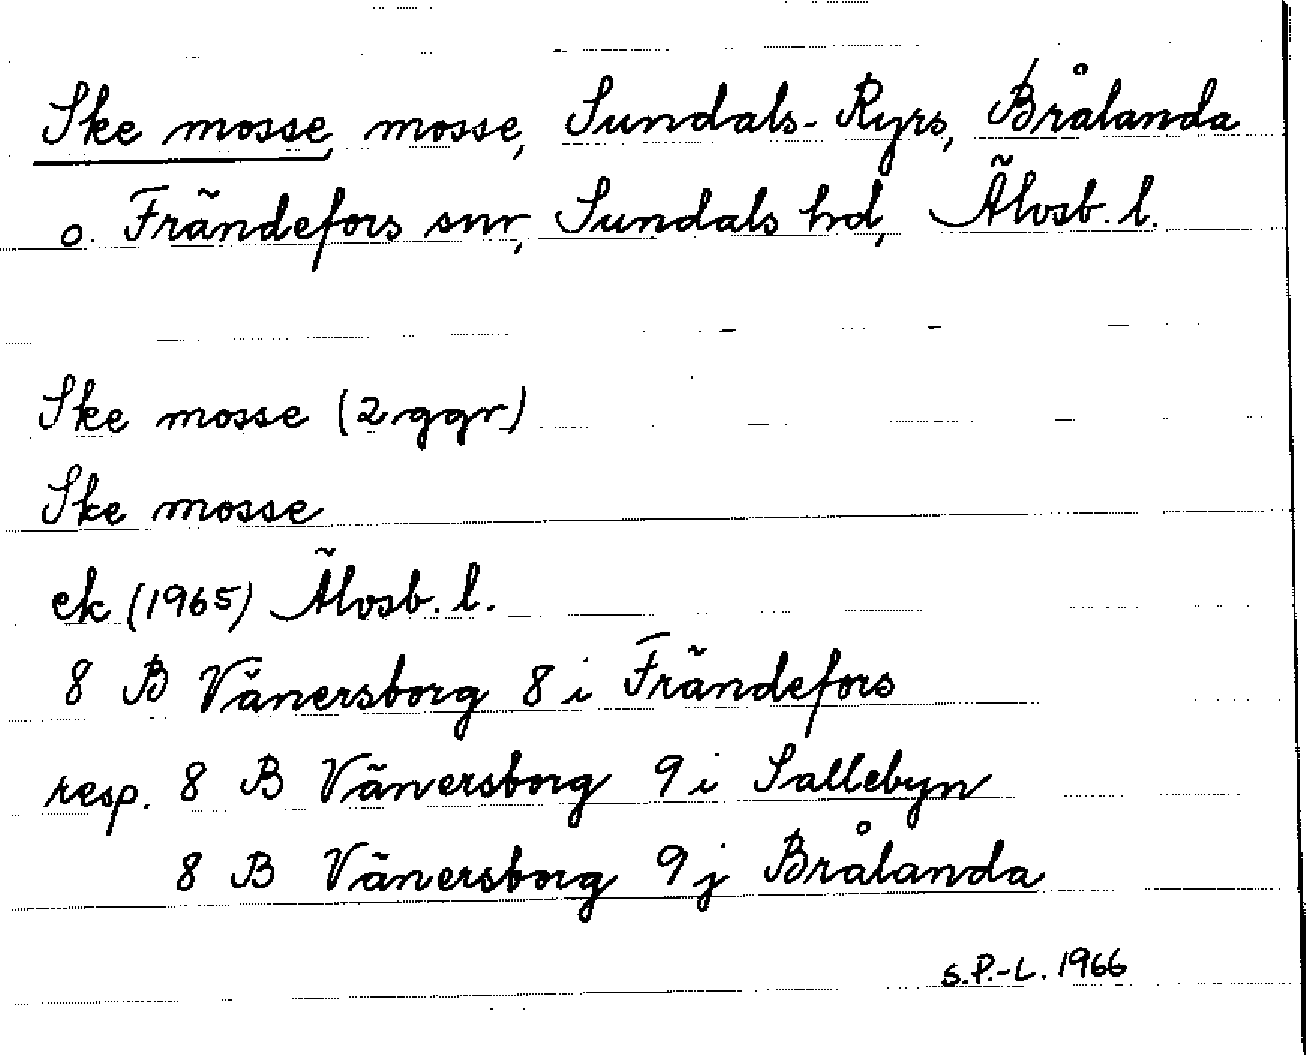 Ske mosse, mosse, Sundals-Ryrs, Brålanda
o. Frändefors snr, Sundals hd, Älvsb. l.
Ske mosse (2 ggr)
Ske mosse
ek (1965) Älvsb. l.
8 B Vänersborg 8 i Frändefors
resp. 8 B Vänersborg 9 i Sallebyn
8 B Vänersborg 9 j Brålanda
S.P.-L. 1966